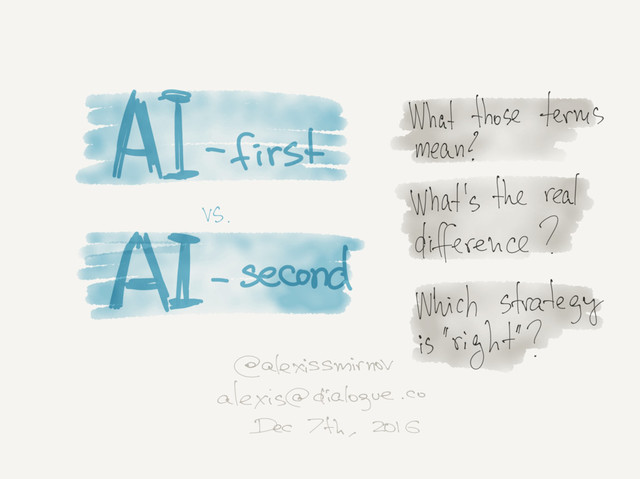 AI-first
vs.
AI-second
What those terms
mean?
What's the real
difference?
Which strategy
is "right"?
@alexissmirnov
alexis@dialogue.co
Dec 7th, 2016